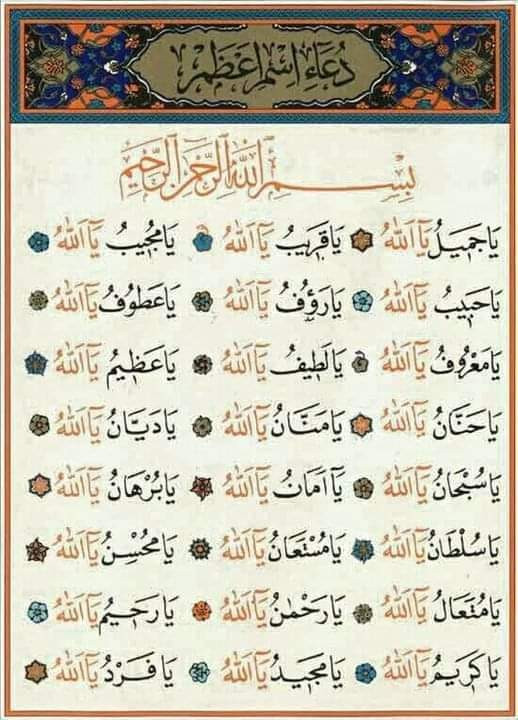 دُعَاءِ اِسْمِ اَعْظَمْ
بِسْمِ اللّٰهِ الرَّحْمٰنِ الرَّحِيمِ
يَا جَمِيلُ يَآ اَللّٰهُ يَا قَرِيبُ يَآ اَللّٰهُ يَا مُجِيبُ يَآ اَللّٰهُ
يَا حَبِيبُ يَآ اَللّٰهُ يَا رَؤُفُ يَآ اَللّٰهُ يَا عَطُوفُ يَآ اَللّٰهُ
يَا مَعْرُوفُ يَآ اَللّٰهُ يَا لَطِيفُ يَآ اَللّٰهُ يَا عَظِيمُ يَآ اَللّٰهُ
يَا حَنَّانُ يَآ اَللّٰهُ يَا مَنَّانُ يَآ اَللّٰهُ يَا دَيَّانُ يَآ اَللّٰهُ
يَا سُبْحَانُ يَآ اَللّٰهُ يَآ اَمَانُ يَآ اَللّٰهُ يَا بُرْهَانُ يَآ اَللّٰهُ
يَا سُلْطَانُ يَآ اَللّٰهُ يَا مُسْتَعَانُ يَآ اَللّٰهُ يَا مُحْسِنُ يَآ اَللّٰهُ
يَا مُتَعَالُ يَآ اَللّٰهُ يَا رَحْمٰنُ يَآ اَللّٰهُ يَا رَحِيمُ يَآ اَللّٰهُ
يَا كَرِيمُ يَآ اَللّٰهُ يَا مَجِيدُ يَآ اَللّٰهُ يَا فَرْدُ يَآ اَللّٰهُ